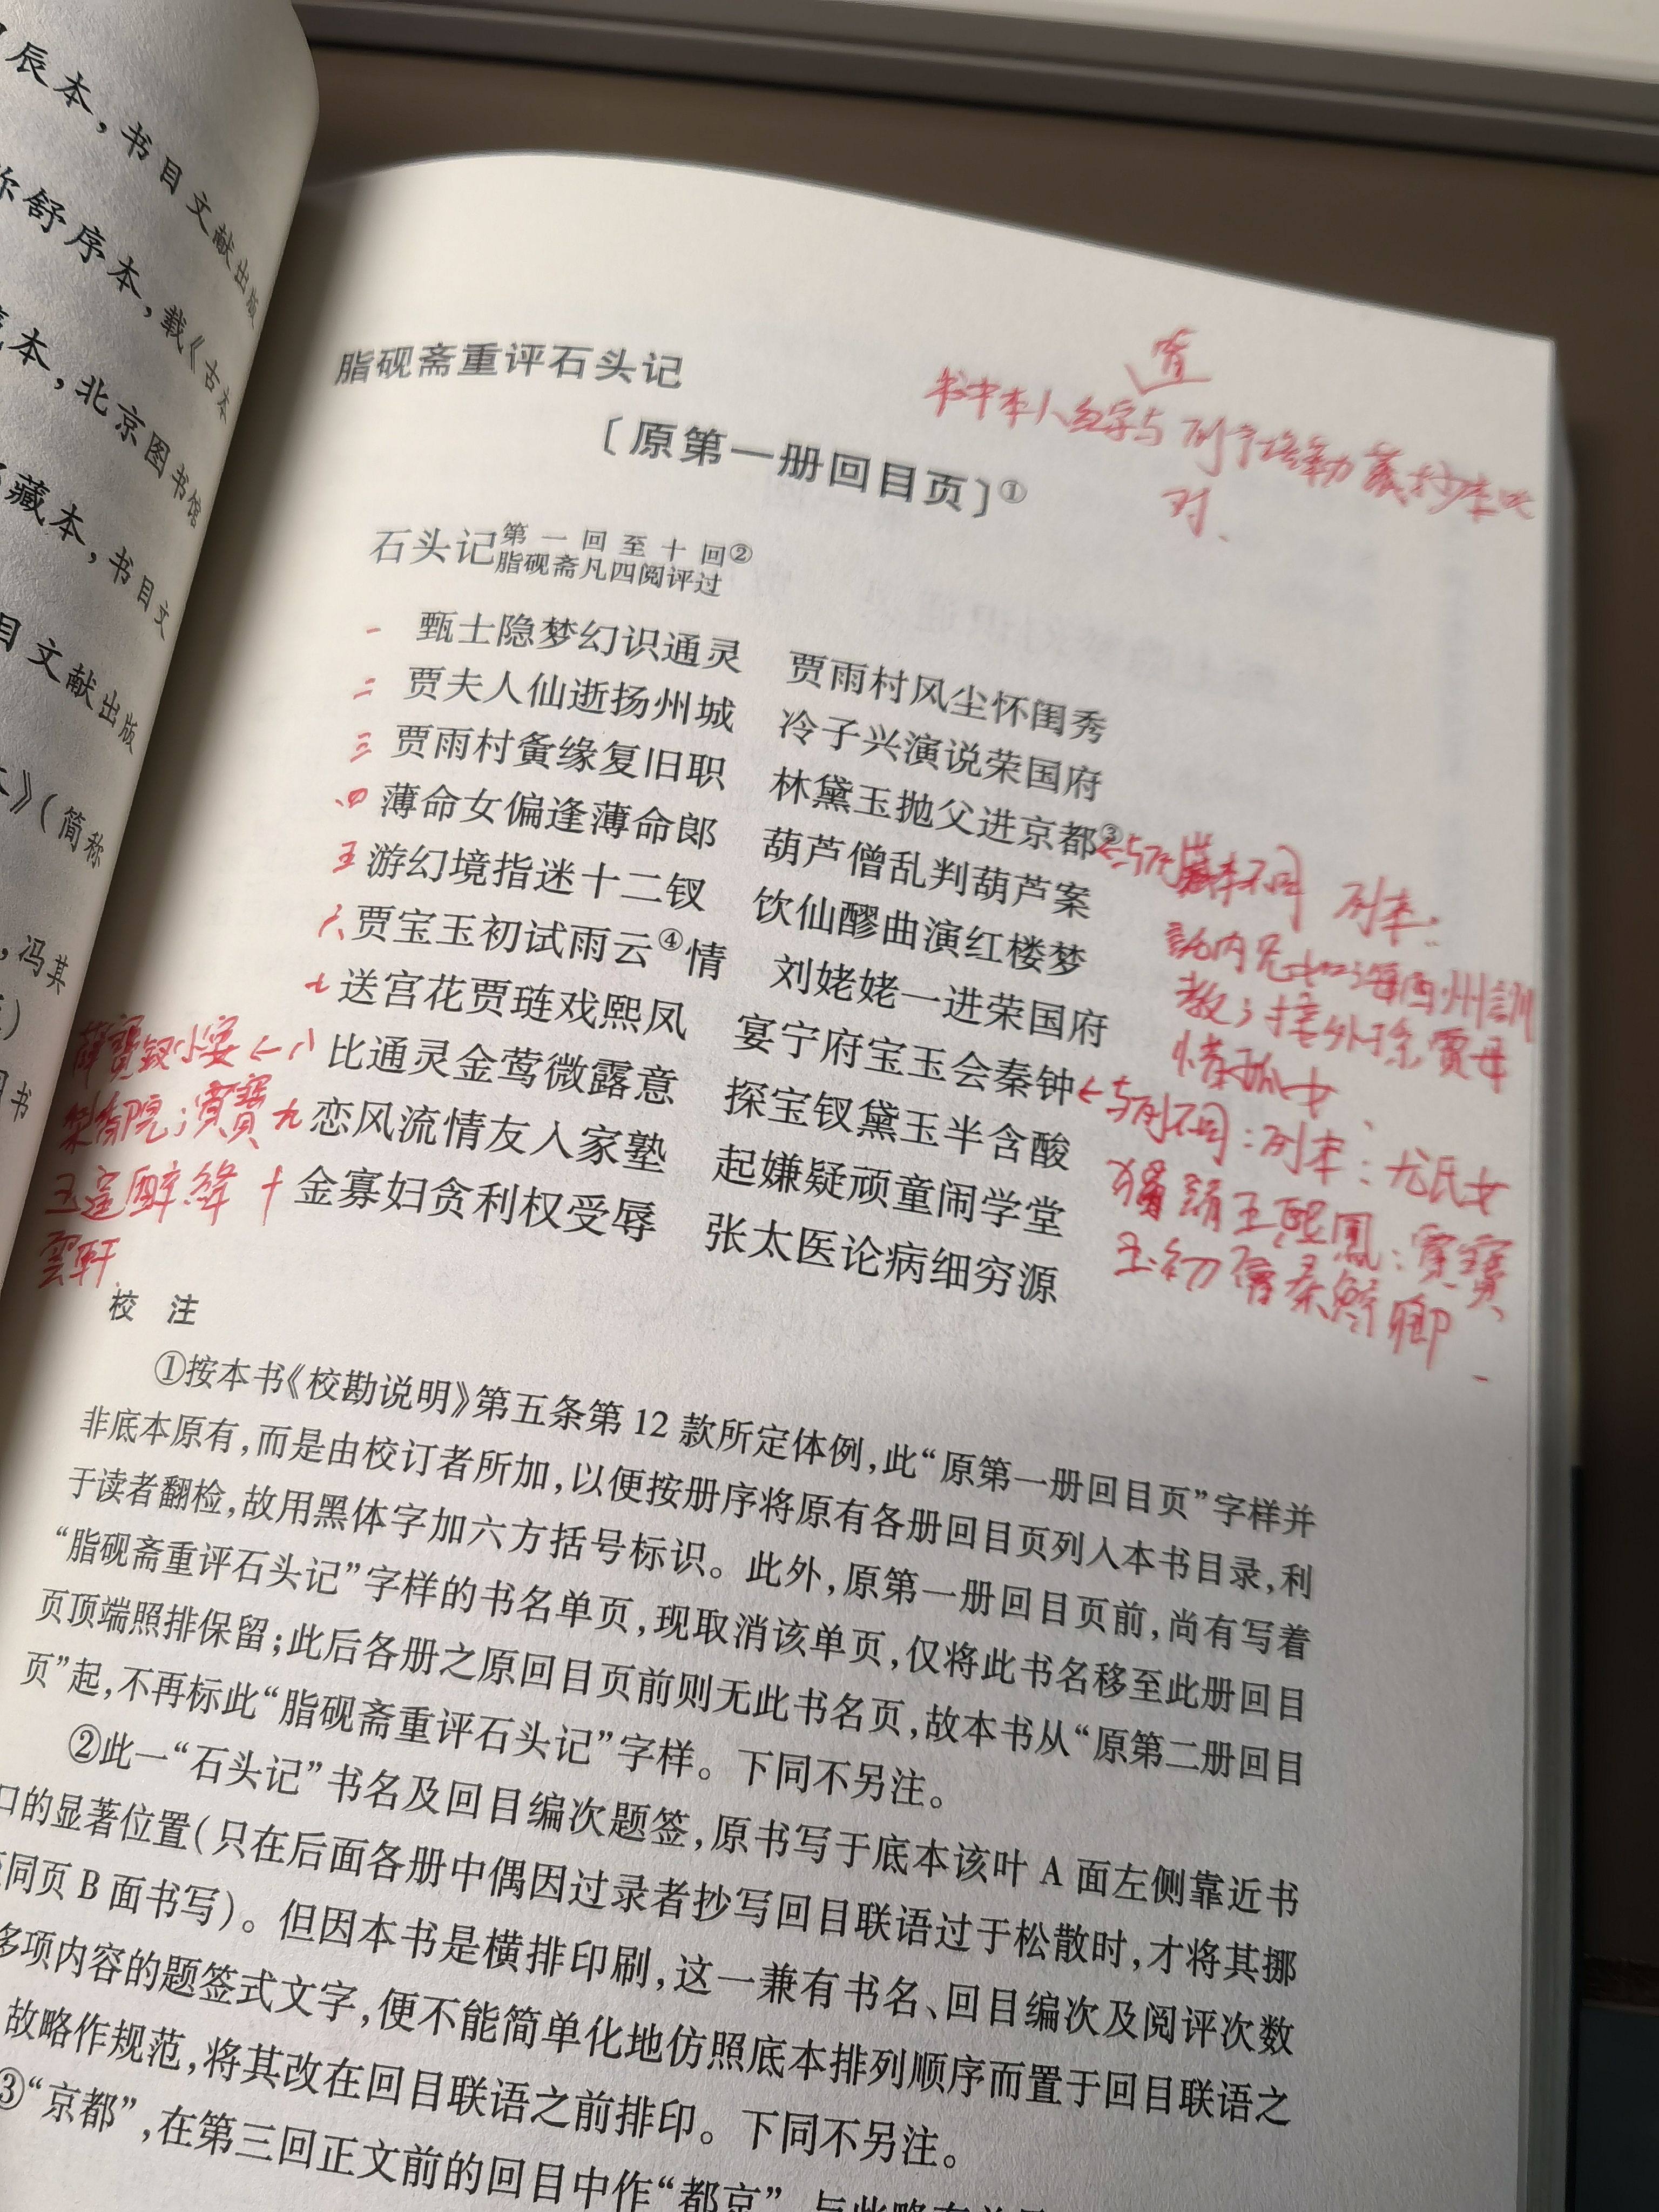 辰本，书目文献出版
称舒序本，载《古本
本，北京图书馆
藏本，书目文
目文献出版
》（简称
，冯其
图书
脂砚斋重评石头记
〔原第一册回目页〕①
书中本人红字与列宁格勒藏抄本比
对、
石头记第一回至十回②
脂砚斋凡四阅评过
一 甄士隐梦幻识通灵 贾雨村风尘怀闺秀
二 贾夫人仙逝扬州城 冷子兴演说荣国府
三 贾雨村夤缘复旧职 林黛玉抛父进京都③
四 薄命女偏逢薄命郎 葫芦僧乱判葫芦案
五 游幻境指迷十二钗 饮仙醪曲演红楼梦
六 贾宝玉初试雨云④情 刘姥姥一进荣国府
七 送宫花贾琏戏熙凤 宴宁府宝玉会秦钟
八 比通灵金莺微露意 探宝钗黛玉半含酸
九 恋风流情友入家塾 起嫌疑顽童闹学堂
十 金寡妇贪利权受辱 张太医论病细穷源
←与列藏本不同 列本：
託内兄如海西州訓
教；接外孫賈母
惜孤女
←与列不同：列本：尤氏女
獨請王熙鳳；賈寶
玉初會秦鯨卿
薛寶釵小宴←
梨香院；賈寶
玉逞醉絳
雲軒
校 注
①按本书《校勘说明》第五条第 12 款所定体例，此“原第一册回目页”字样并
非底本原有，而是由校订者所加，以便按册序将原有各册回目页列入本书目录，利
于读者翻检，故用黑体字加六方括号标识。此外，原第一册回目页前，尚有写着
“脂砚斋重评石头记”字样的书名单页，现取消该单页，仅将此书名移至此册回目
页顶端照排保留；此后各册之原回目页前则无此书名页，故本书从“原第二册回目
页”起，不再标此“脂砚斋重评石头记”字样。下同不另注。
②此一“石头记”书名及回目编次题签，原书写于底本该叶 A 面左侧靠近书
口的显著位置（只在后面各册中偶因过录者抄写回目联语过于松散时，才将其挪
同页 B 面书写）。但因本书是横排印刷，这一兼有书名、回目编次及阅评次数
多项内容的题签式文字，便不能简单化地仿照底本排列顺序而置于回目联语之
故略作规范，将其改在回目联语之前排印。下同不另注。
③“京都”，在第三回正文前的回目中作“都京”